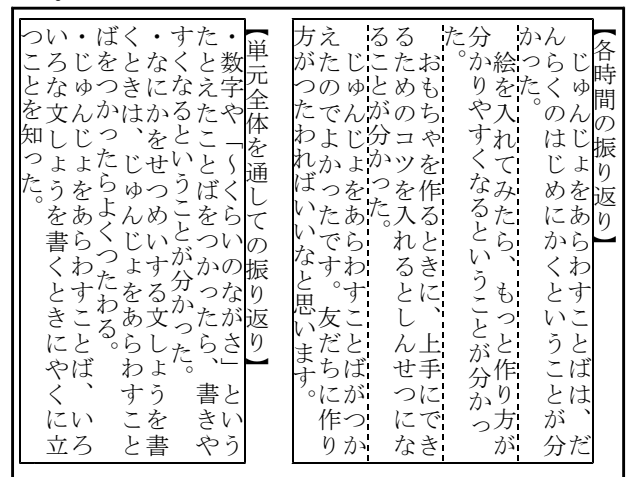 【各時間の振り返り】
じゅんじょをあらわすことばは、だ
んらくのはじめにかくということが分
かった。
絵を入れてみたら、もっと作り方が
分かりやすくなるということが分かっ
た。
おもちゃを作るときに、上手にでき
るためのコツを入れるとしんせつにな
ることが分かった。
じゅんじょをあらわすことばがつか
えたのでよかったです。友だちに作り
方がつたわればいいなと思います。
【単元全体を通しての振り返り】
・数字や「～くらいのながさ」という
たとえたことばをつかったら、書きや
すくなるということが分かった。
・なにかをせつめいする文しょうを書
くときは、じゅんじょをあらわすこと
ばをつかったらよくつたわる。
・じゅんじょをあらわすことば、いろ
いろな文しょうを書くときにやくに立
つことを知った。